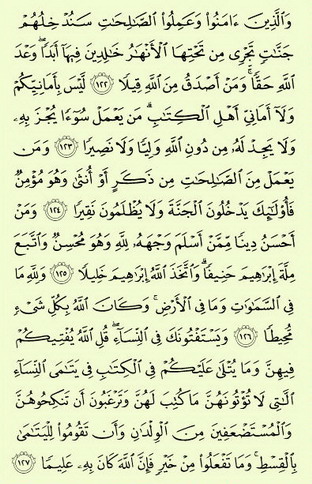 وَالَّذِينَ ءَامَنُوا وَعَمِلُوا الصَّالِحَاتِ سَنُدْخِلُهُمْ
جَنَّاتٍ تَجْرِي مِن تَحْتِهَا الْأَنْهَارُ خَالِدِينَ فِيهَا أَبَدًا ۖ وَعْدَ
اللَّهِ حَقًّا ۚ وَمَنْ أَصْدَقُ مِنَ اللَّهِ قِيلًا ﴿١٢٢﴾ لَّيْسَ بِأَمَانِيِّكُمْ
وَلَا أَمَانِيِّ أَهْلِ الْكِتَابِ ۗ مَن يَعْمَلْ سُوءًا يُجْزَ بِهِ
وَلَا يَجِدْ لَهُ مِن دُونِ اللَّهِ وَلِيًّا وَلَا نَصِيرًا ﴿١٢٣﴾ وَمَن
يَعْمَلْ مِنَ الصَّالِحَاتِ مِن ذَكَرٍ أَوْ أُنثَىٰ وَهُوَ مُؤْمِنٌ
فَأُولَٰئِكَ يَدْخُلُونَ الْجَنَّةَ وَلَا يُظْلَمُونَ نَقِيرًا ﴿١٢٤﴾ وَمَنْ
أَحْسَنُ دِينًا مِّمَّنْ أَسْلَمَ وَجْهَهُ لِلَّهِ وَهُوَ مُحْسِنٌ وَاتَّبَعَ
مِلَّةَ إِبْرَاهِيمَ حَنِيفًا ۗ وَاتَّخَذَ اللَّهُ إِبْرَاهِيمَ خَلِيلًا ﴿١٢٥﴾ وَلِلَّهِ مَا
فِي السَّمَاوَاتِ وَمَا فِي الْأَرْضِ ۚ وَكَانَ اللَّهُ بِكُلِّ شَيْءٍ
مُّحِيطًا ﴿١٢٦﴾ وَيَسْتَفْتُونَكَ فِي النِّسَاءِ ۖ قُلِ اللَّهُ يُفْتِيكُمْ
فِيهِنَّ وَمَا يُتْلَىٰ عَلَيْكُمْ فِي الْكِتَابِ فِي يَتَامَى النِّسَاءِ
الَّاتِي لَا تُؤْتُونَهُنَّ مَا كُتِبَ لَهُنَّ وَتَرْغَبُونَ أَن تَنكِحُوهُنَّ
وَالْمُسْتَضْعَفِينَ مِنَ الْوِلْدَانِ وَأَن تَقُومُوا لِلْيَتَامَىٰ
بِالْقِسْطِ ۚ وَمَا تَفْعَلُوا مِنْ خَيْرٍ فَإِنَّ اللَّهَ كَانَ بِهِ عَلِيمًا ﴿١٢٧﴾